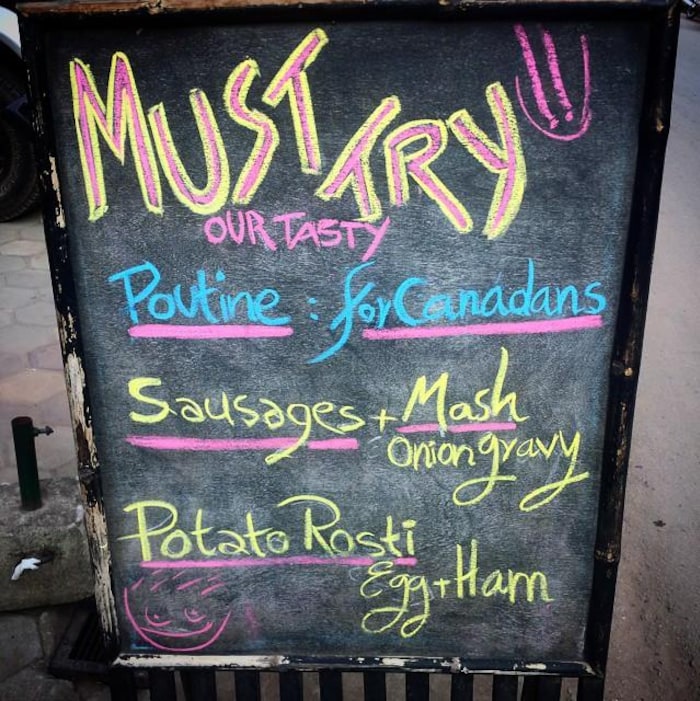 MUST TRY !!
OUR TASTY
Poutine : for Canadans
Sausages + Mash
Onion gravy
Potato Rosti
Egg + Ham